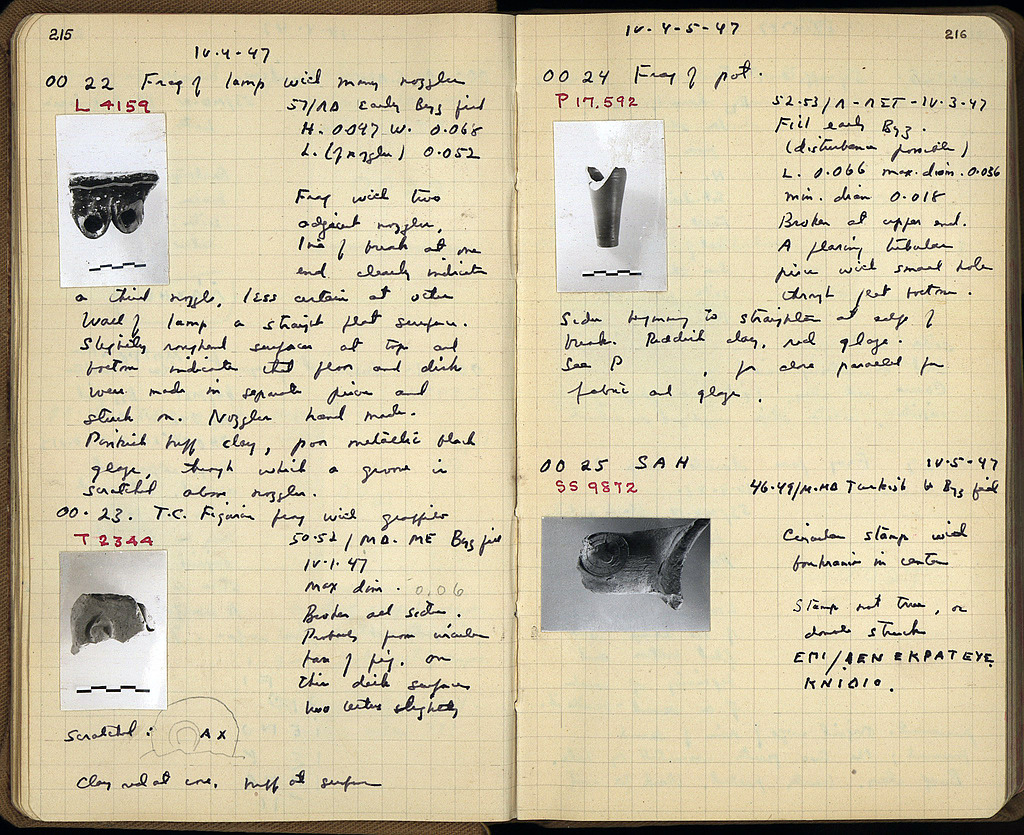 215
IV-4-47
OO 22 Frag of lamp with many nozzles
L 4159
57/ΛΔ Early Byz fill
H. 0.047 W. 0.068
L. (of nozzle) 0.052
Frag with two
adjacent nozzles.
Line of break at one
end clearly indicates
a third nozzle, less certain at other
Wall of lamp a straight flat surface.
Slightly roughened surfaces at top and
bottom indicate that floor and disk
were made in separate pieces and
stuck on. Nozzles hand made.
Pinkish buff clay, poor metallic black
glaze, through which a groove is
scratched above nozzles.
OO-23. T.C. Figurine frag with graffito
T 2344
50-52 / MΔ-ME Byz fill
IV-1-47
Max dim. 0.06
Broken all sides.
Probably from circular
base of fig. on
this disk surface
two letters slightly
scratched: AX
Clay red at core, buff at surface
216
IV-4-5-47
OO 24 Frag of pot.
P 17,592
52-53/Λ-ΛΣΤ-IV-3-47
Fill early Byz.
(disturbance possible)
L. 0.066 max. diam. 0.036
min. diam 0.018
Broken at upper end.
A flaring tubular
piece with small hole
through flat bottom.
Sides beginning to straighten at edge of
break. Reddish clay, red glaze.
See P , for close parallel for
fabric and glaze.
OO 25 SAH IV-5-47
SS 9872
46-49/M-MΔ Turkish & Byz fill
Circular stamp with
boukranion in center
Stamp not true, or
double struck
ΕΠΙ/ΑΕΝ ΕΚΡΑΤΕΥΕ
ΚΝΙΔΙΟ.